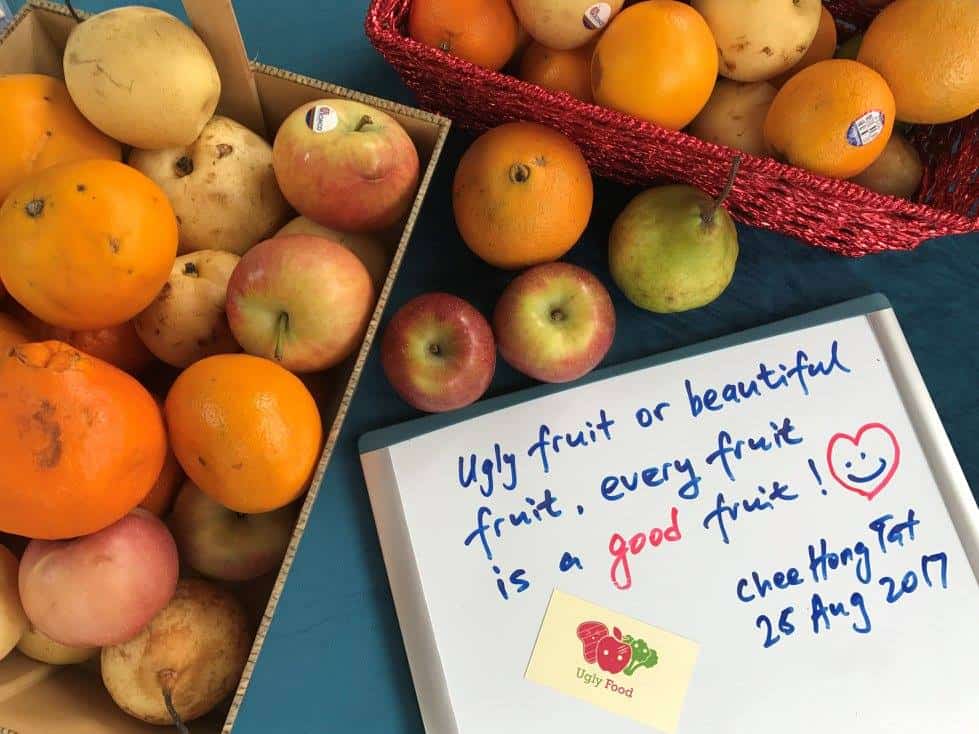 Ugly fruit or beautiful
fruit, every fruit
is a good fruit !
Chee Hong Tat
25 Aug 2017
Ugly Food